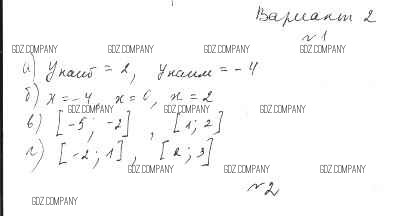 Вариант 2
№1
GDZ.COMPANY GDZ.COMPANY GDZ.COMPANY GDZ.COMPANY
а) Yнаиб = 2, Yнаим = -4
б) x = -4, x = 0, x = 2
GDZ.COMPANY GDZ.COMPANY GDZ.COMPANY
в) [-5; -2], [1; 2]
г) [-2; 1], [2; 3]
GDZ.COMPANY GDZ.COMPANY GDZ.COMPANY
№2
GDZ.COMPANY